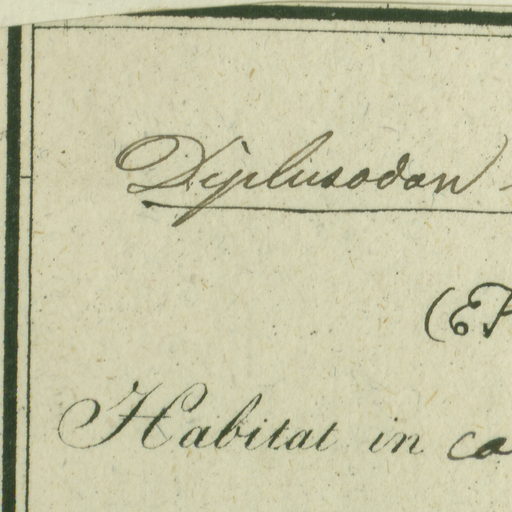 Diplusodon
(E
Habitat in ca